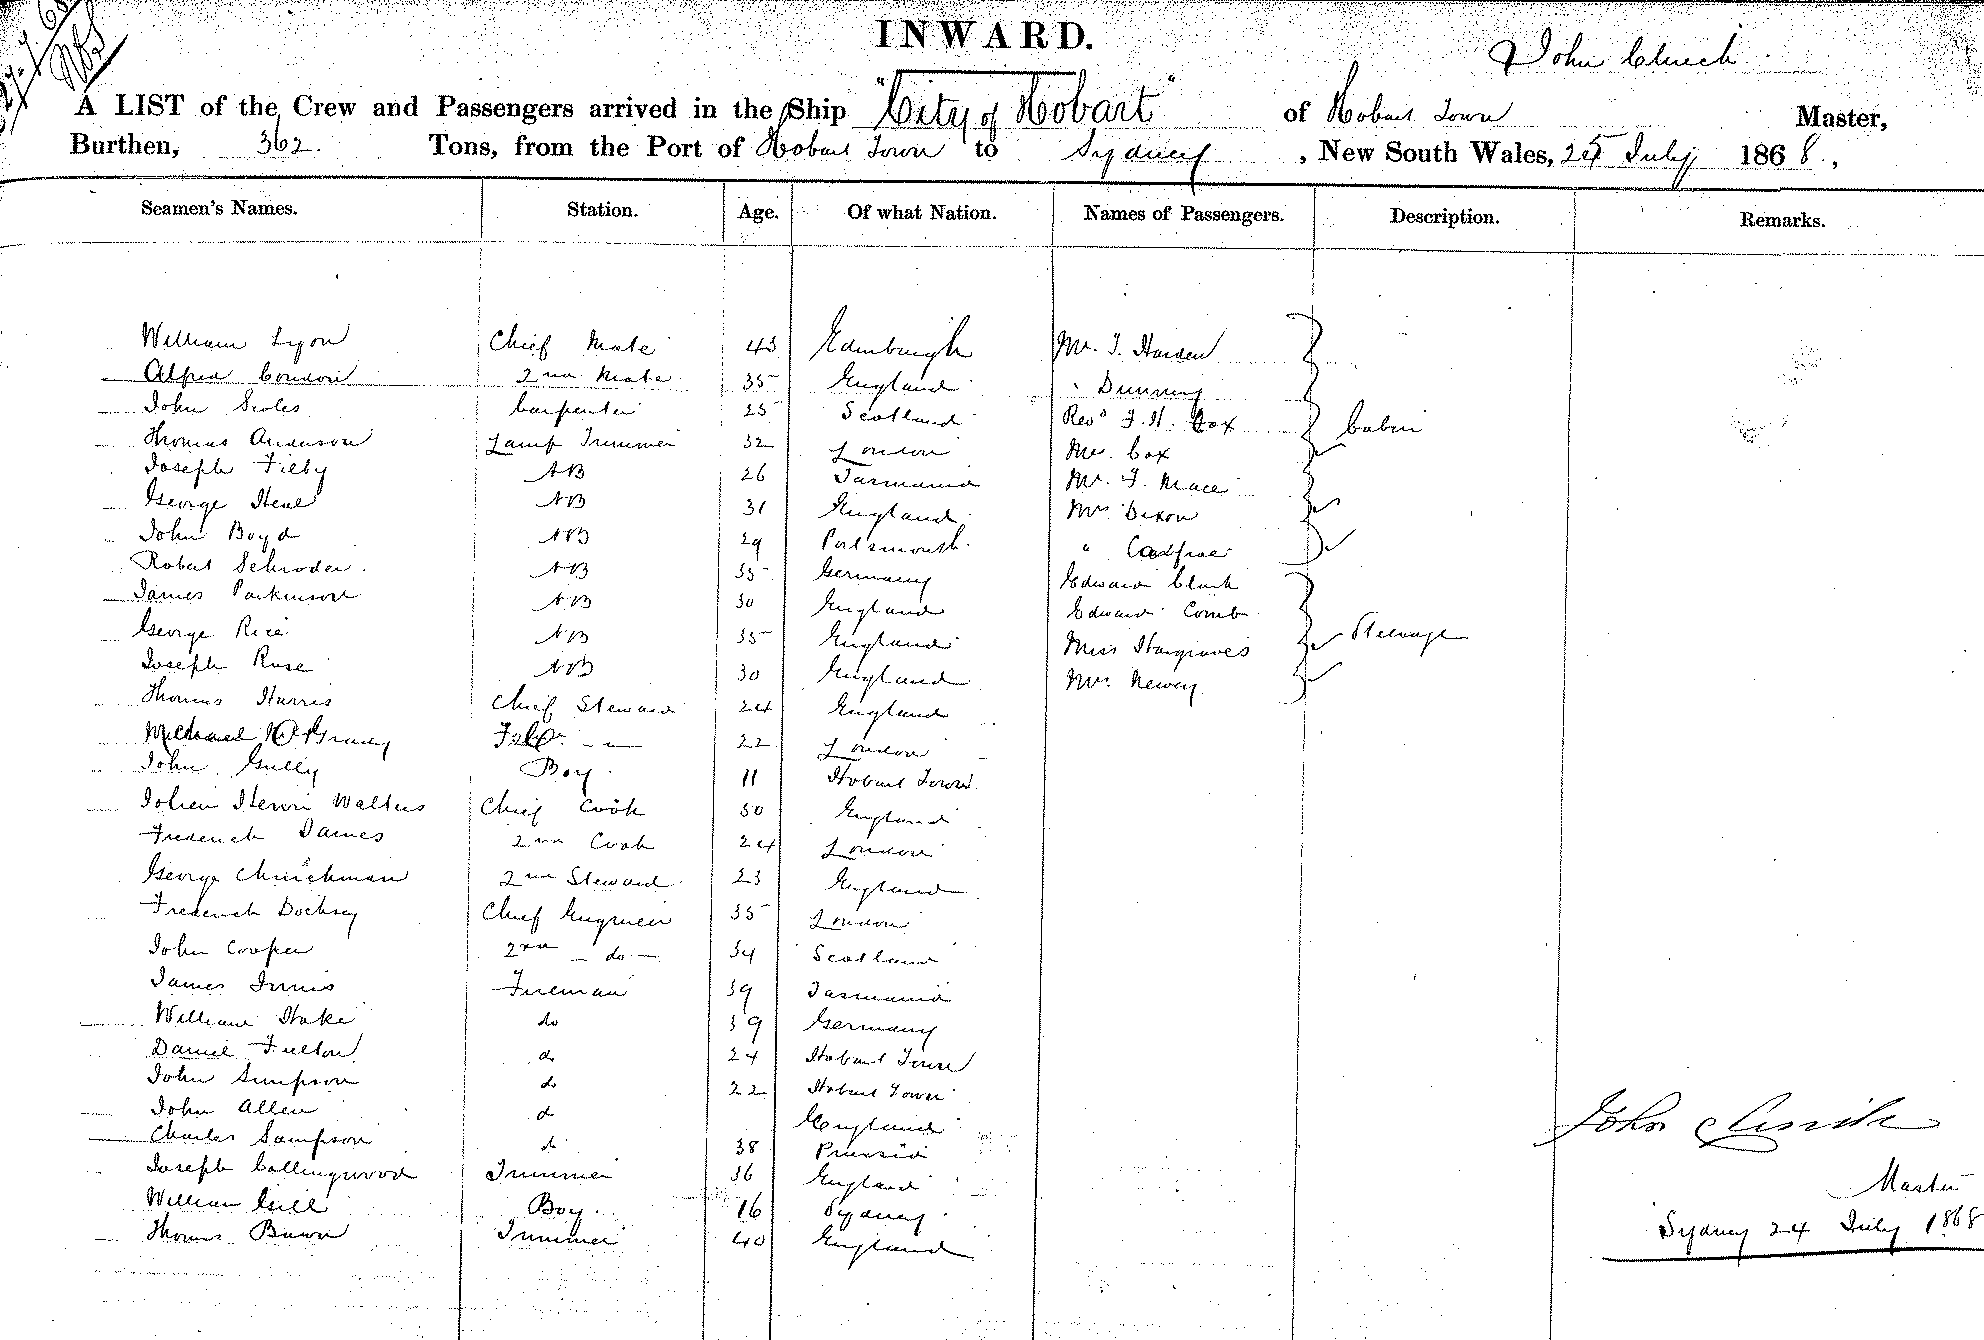 27/7/68
INWARD.
John Clinch
A LIST of the Crew and Passengers arrived in the Ship "City of Hobart" of Hobart Town Master,
Burthen, 362. Tons, from the Port of Hobart Town to Sydney, New South Wales, 25 July 1868.,
Seamen's Names. Station. Age. Of what Nation. Names of Passengers. Description. Remarks.
William Lyon Chief Mate 43 Edinburgh Mr. J. Harden
Alfred Condon 2nd Mate 35 England " Dunning
John Scoles Carpenter 25 Scotland Revd F. H. Cox Cabin
Thomas Anderson Lamp Trimmer 32 London Mrs. Cox
Joseph Filby AB 26 Tasmania Mr. F. Mace
George Heal AB 31 England Mrs Dixon
John Boyd AB 29 Portsmouth "
Robert Schroder AB 35 Germany Edward Clark
James Parkinson AB 30 England Edward Comb
George Rice AB 35 England Miss Hargraves Steerage
Joseph Rose AB 30 England Mrs. Newey
Thomas Harris Chief Steward 24 England
Michael McGrady 22 London
John Gully Boy 11 Hobart Town
Henri Walters Chief Cook 50 England
Frederick James 2nd Cook 24 London
George Chinchman 2nd Steward 23 England
Frederick Docksey Chief Engineer 35 London
John Cooper 2nd - do - 34 Scotland
James Innis Fireman 39 Tasmania
William Hake do 39 Germany
Daniel Fulton do 24 Hobart Town
John Simpson do 22 Hobart Town
John Allen do England
Charles Sampson do 38 Prussia
Joseph Collingwood Trimmer 36 England
William Gill Boy 16 Sydney
Thomas Brown Trimmer 40 England
John Clinch
Master
Sydney 24 July 1868